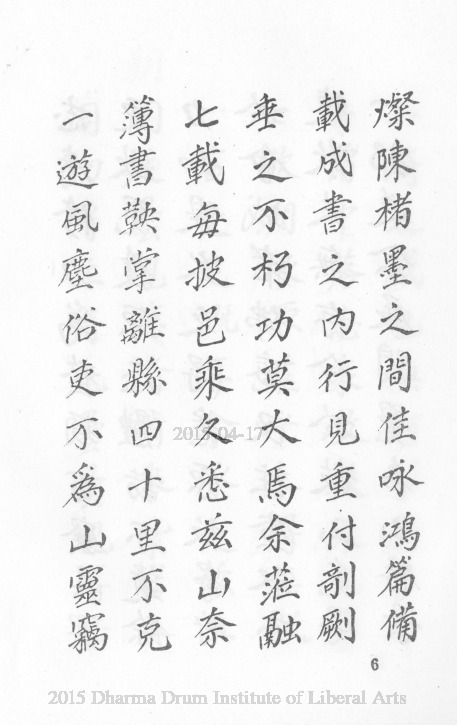 燦陳楮墨之間佳咏鴻篇備
載成書之內行見重付剞劂
垂之不朽功莫大焉余蒞融
七載每披邑乘久悉茲山奈
簿書鞅掌離縣四十里不克
一遊風塵俗吏不為山靈竊
6
2015-04-17
2015 Dharma Drum Institute of Liberal Arts